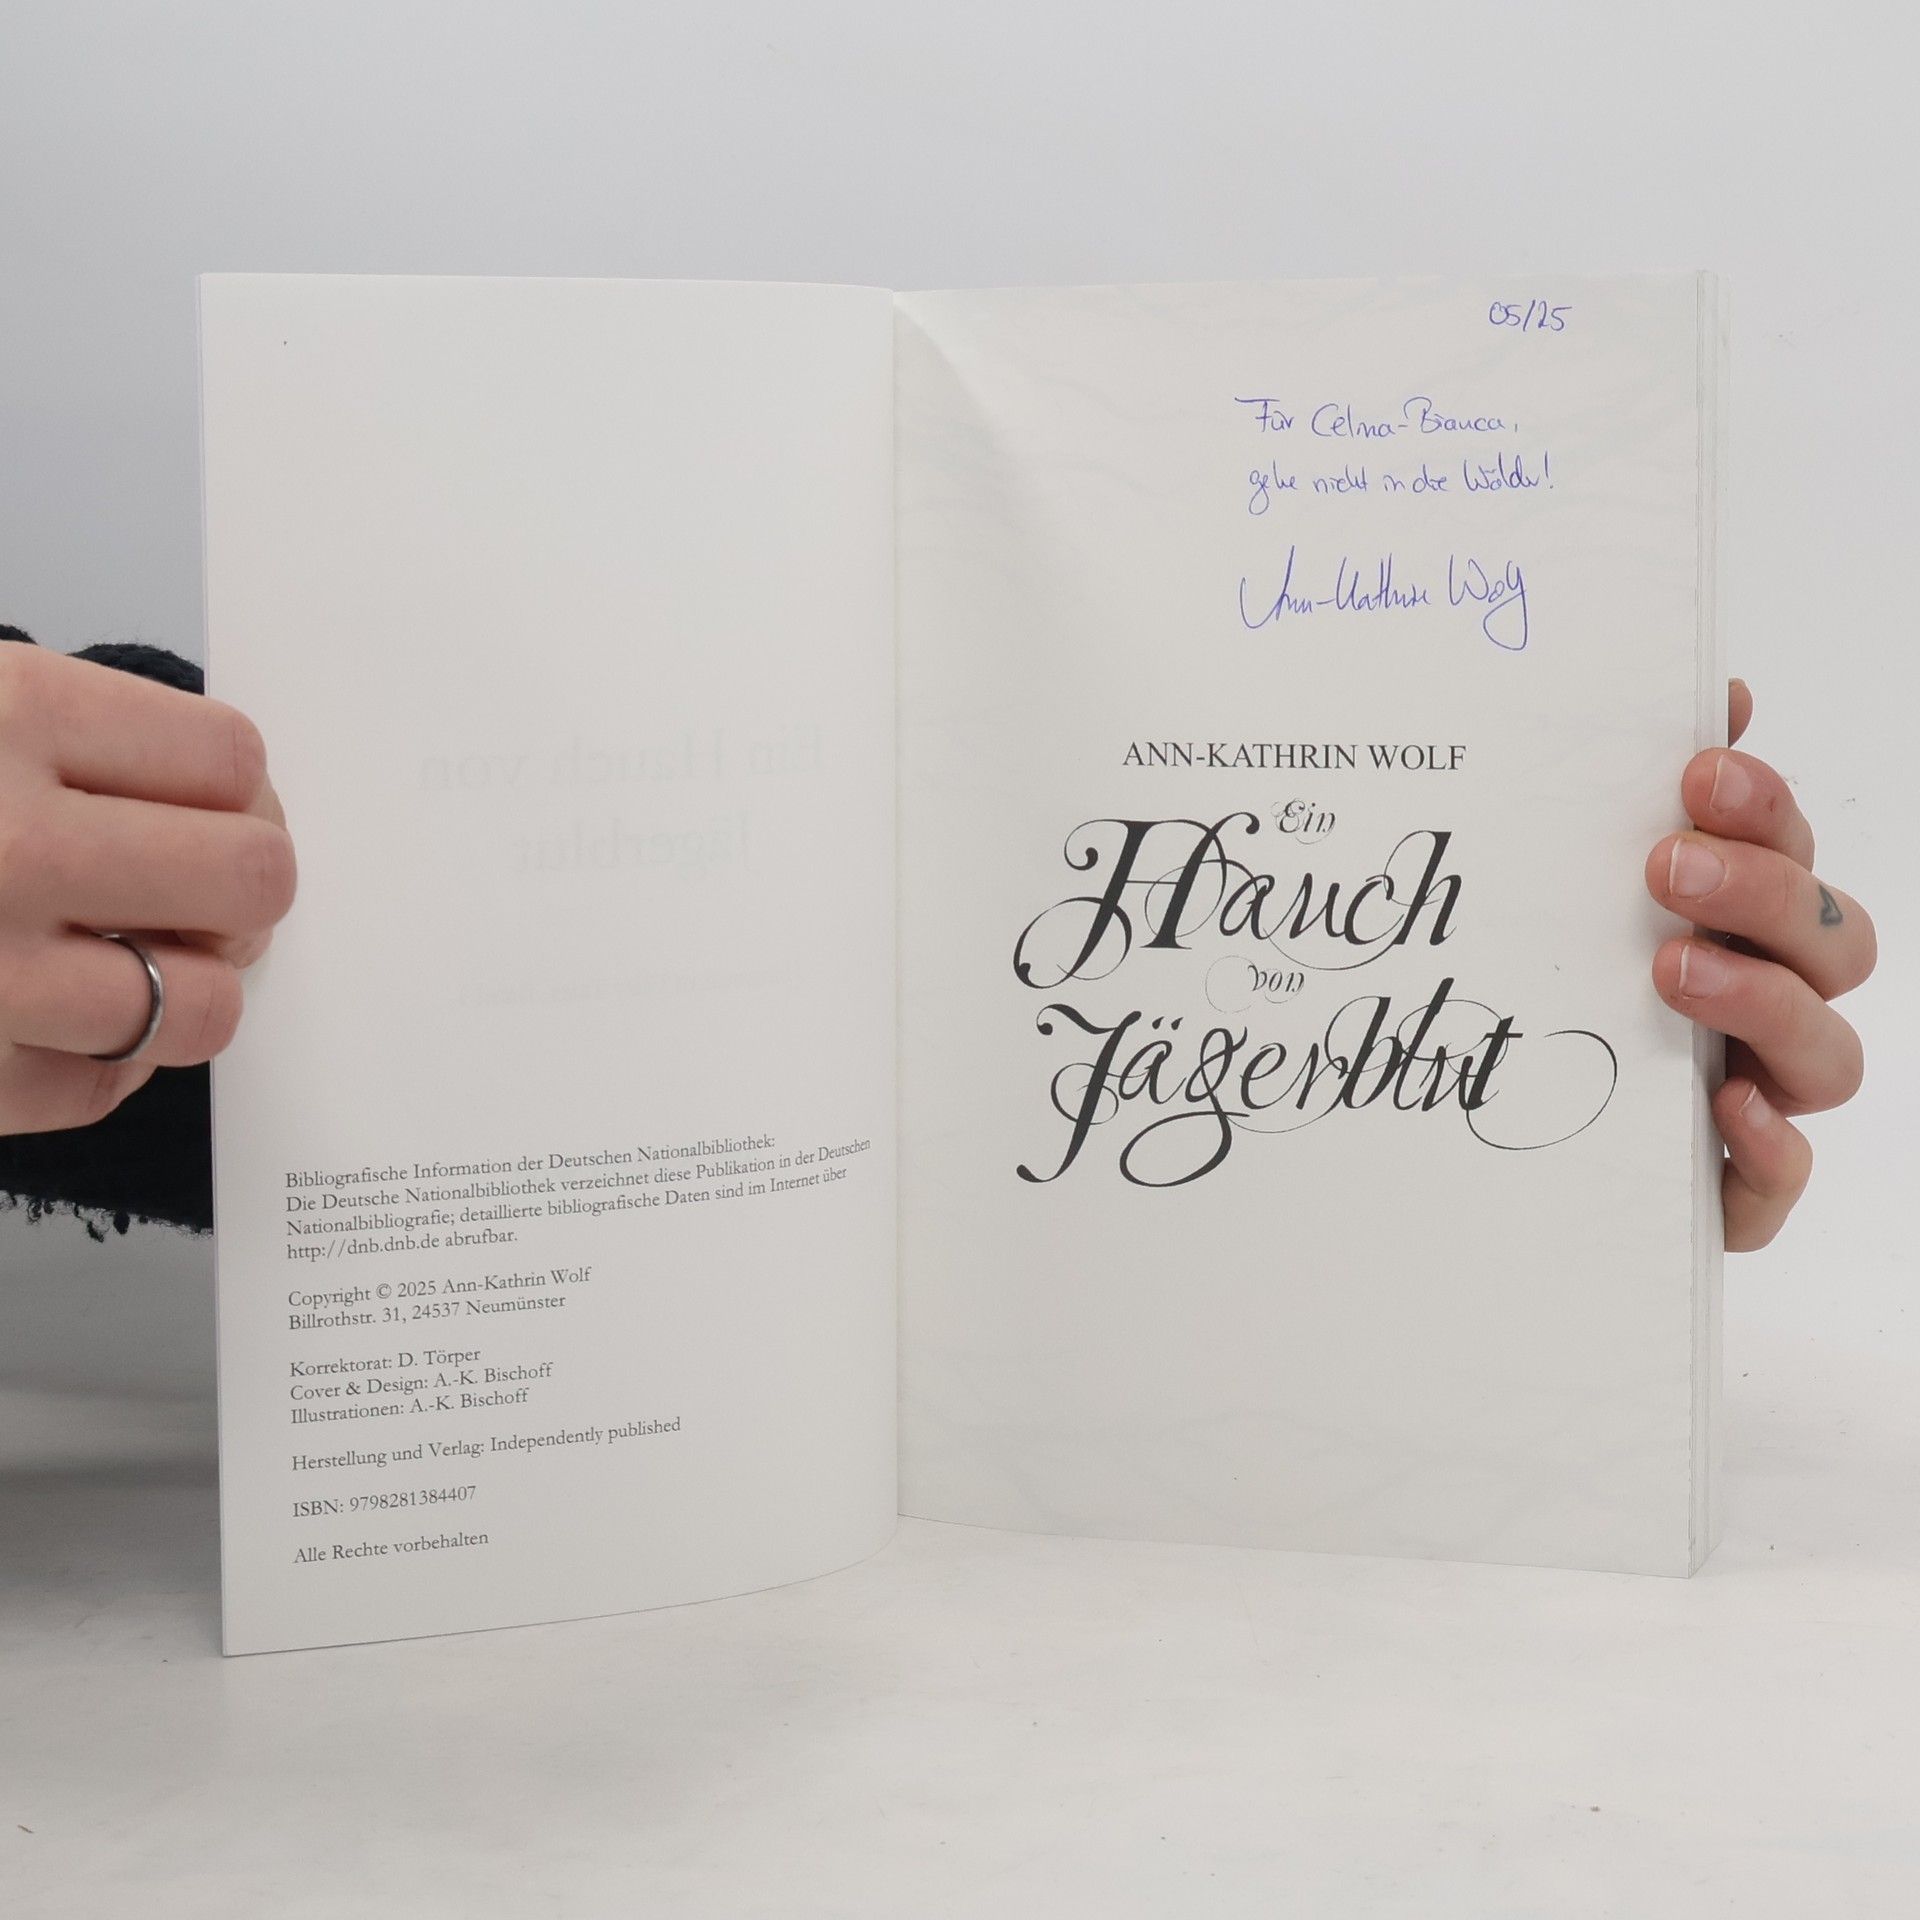 Bibliografische Information der Deutschen Nationalbibliothek:
Die Deutsche Nationalbibliothek verzeichnet diese Publikation in der Deutschen
Nationalbibliografie; detaillierte bibliografische Daten sind im Internet über
http://dnb.dnb.de abrufbar.
Copyright © 2025 Ann-Kathrin Wolf
Billrothstr. 31, 24537 Neumünster
Korrektorat: D. Törper
Cover & Design: A.-K. Bischoff
Illustrationen: A.-K. Bischoff
Herstellung und Verlag: Independently published
ISBN: 9798281384407
Alle Rechte vorbehalten
05/25
Für Celina-Bianca,
gehe nicht in die Wälder!
Ann-Kathrin Wolf
ANN-KATHRIN WOLF
Ein
Hauch
von
Jägerblut